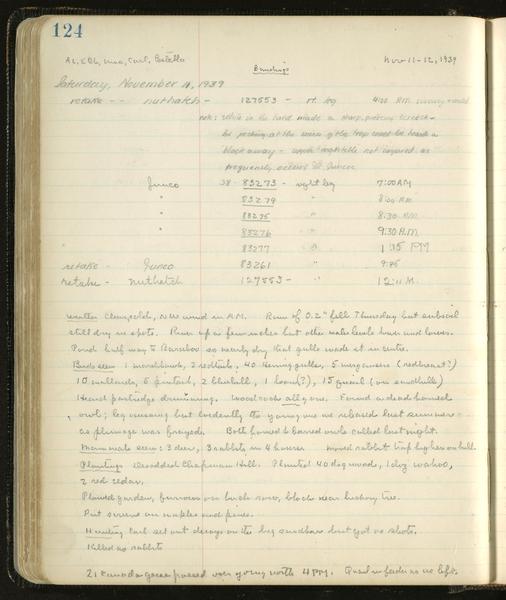 124
AL, EBL, Carl, Estella Nov 11-12, 1939
Banding
Saturday, November 11, 1939
retake -- nuthatch - 127553 - rt. leg 4:00 P.M.
note: while in the hand made a sharp, piercing screech -
frequently occurs in Juncos
Junco 38 - 83273 - right leg 7:00 AM
" 83274 " 8:00 AM
" 83275 " 8:30 AM
" 83276 " 9:30 A.M.
" 83277 " 1:35 PM
retake - Junco 83261 " 9:45
retake - nuthatch 127553 - " 12:
weather Clear, cold, NW wind in A.M. Rain of 0.2" fell Thursday but subsoil
still dry in spots. River up a few inches but other water levels lower and lower.
Pond half way to Baraboo so nearly dry that gulls wade it in centre.
Birds seen 1 marsh hawk, 2 redtails, 40 Herring gulls, 5 mergansers (redbreast?)
10 mallards, 5 pintail, 2 bluebill, 1 loon (?), 15 quail (on sandhills)
Heard partridge drumming. Woodcocks all gone. Found a dead horned
owl; leg missing but evidently the young one we released last summer
as plumage was frayed. Both horned & barred owls called last night.
Mammals seen: 3 deer, 3 rabbits in 4 hours. Moved rabbit trap higher on hill.
Planting Chapman Hill. Planted 40 dogwoods, 1 dug wahoo,
2 red cedar.
Plowed garden, furrows on birch row, block near hickory tree.
Put screens on maples and pines.
Hunting Carl set out decoys on the big sandbar but got no shots.
Killed no rabbits
21 Canada geese passed over going north 4 PM. Quail in feeder as we left.